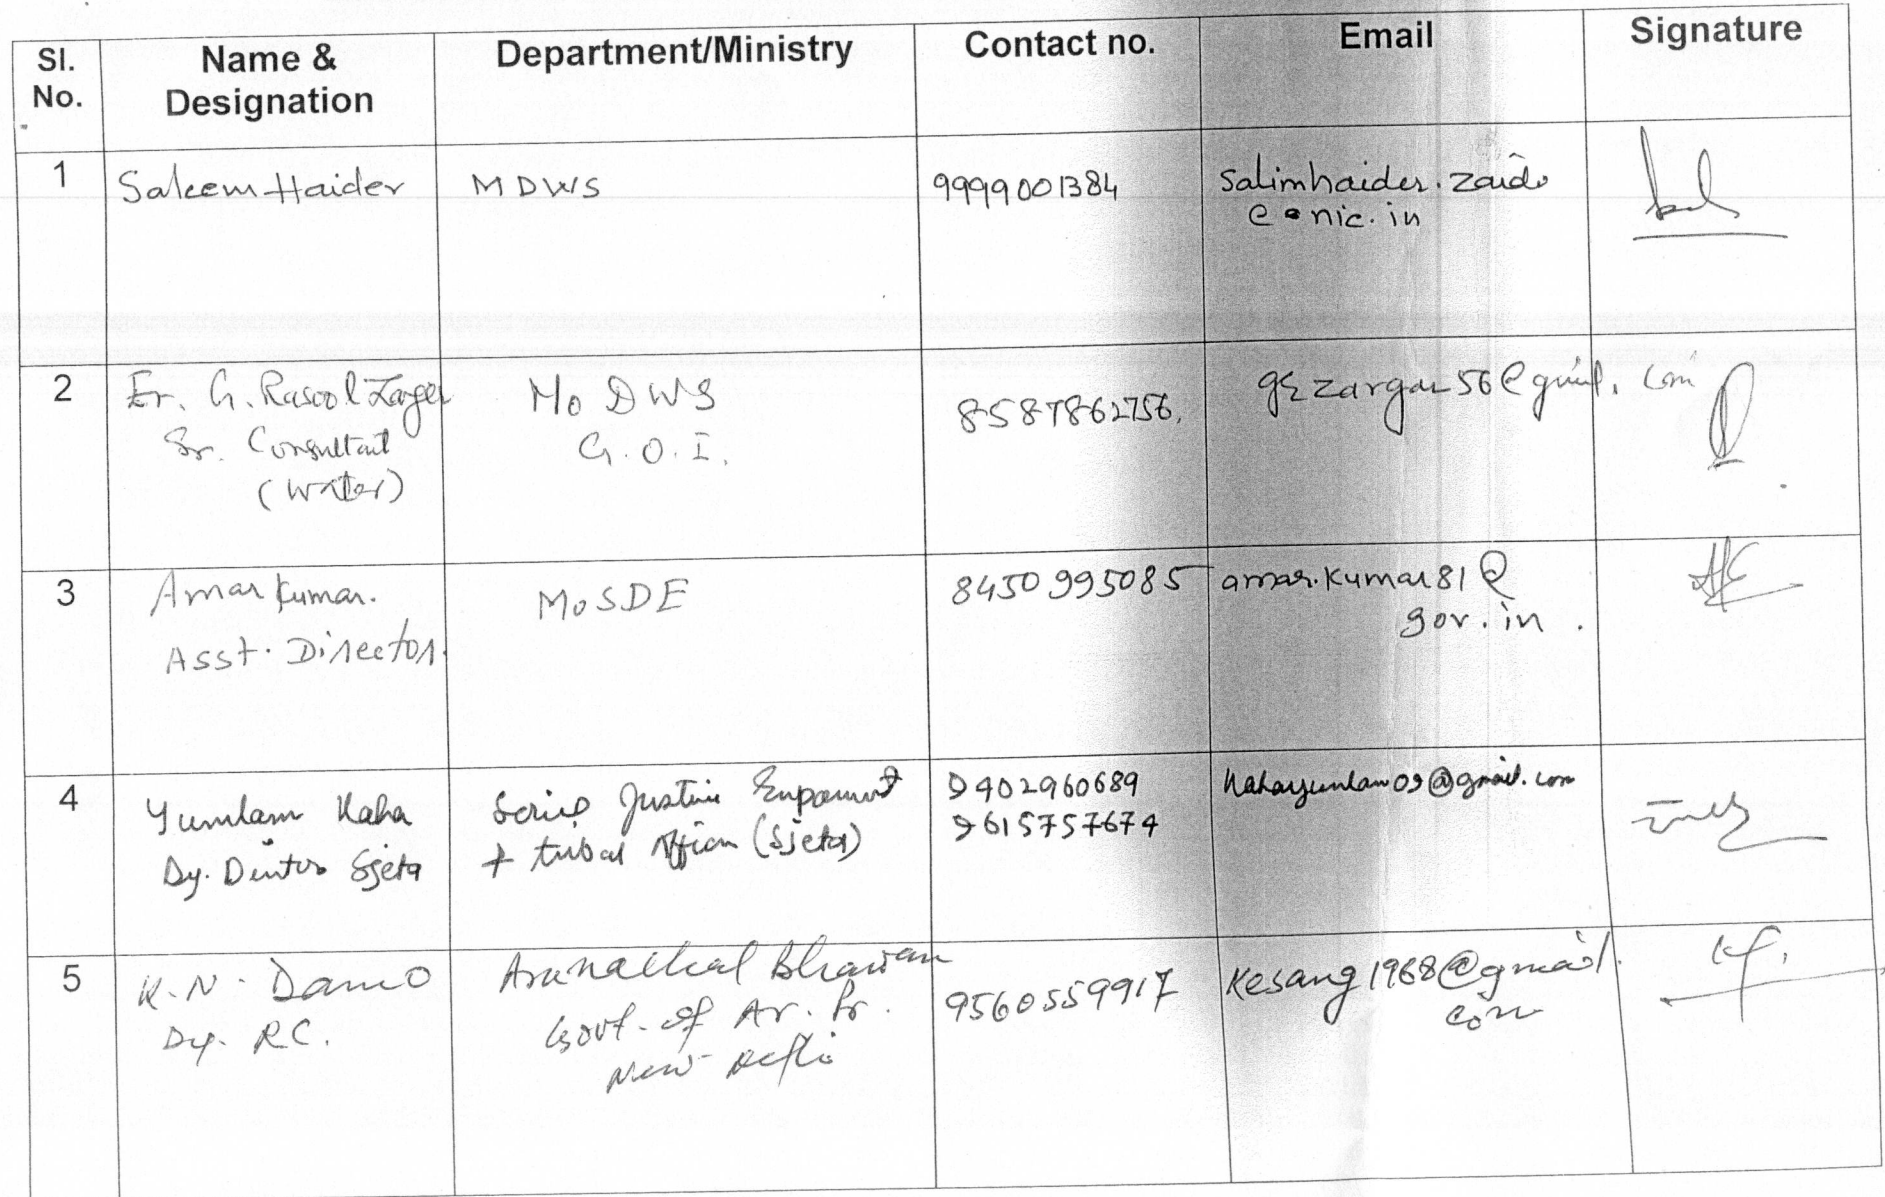 Sl. No.
Name & Designation
Department/Ministry
Contact no.
Email
Signature
1
Saleem Haider
MDWS
9999001384
Salimhaider.zaidi
@nic.in
2
Er. G. Rasool Zarger
Sr. Consultant
(Water)
Mo DWS
G.O.I.
8587862756,
zargar56@gmail.com
3
Amar Kumar.
Asst. Director.
MoSDE
8450995085
amar.kumar81@
gov.in.
4
Yumlam Kaha
Dy. Director Sjeta
Justice Empowerment
+ tribal Affairs (Sjeta)
9402960689
9615757674
kahayumlam09@gmail.com
5
K.N. Damo
Dy. RC.
Arunachal Bhawan
Govt. of Ar. Pr.
New Delhi
9560559917
Kesang1968@gmail.
com